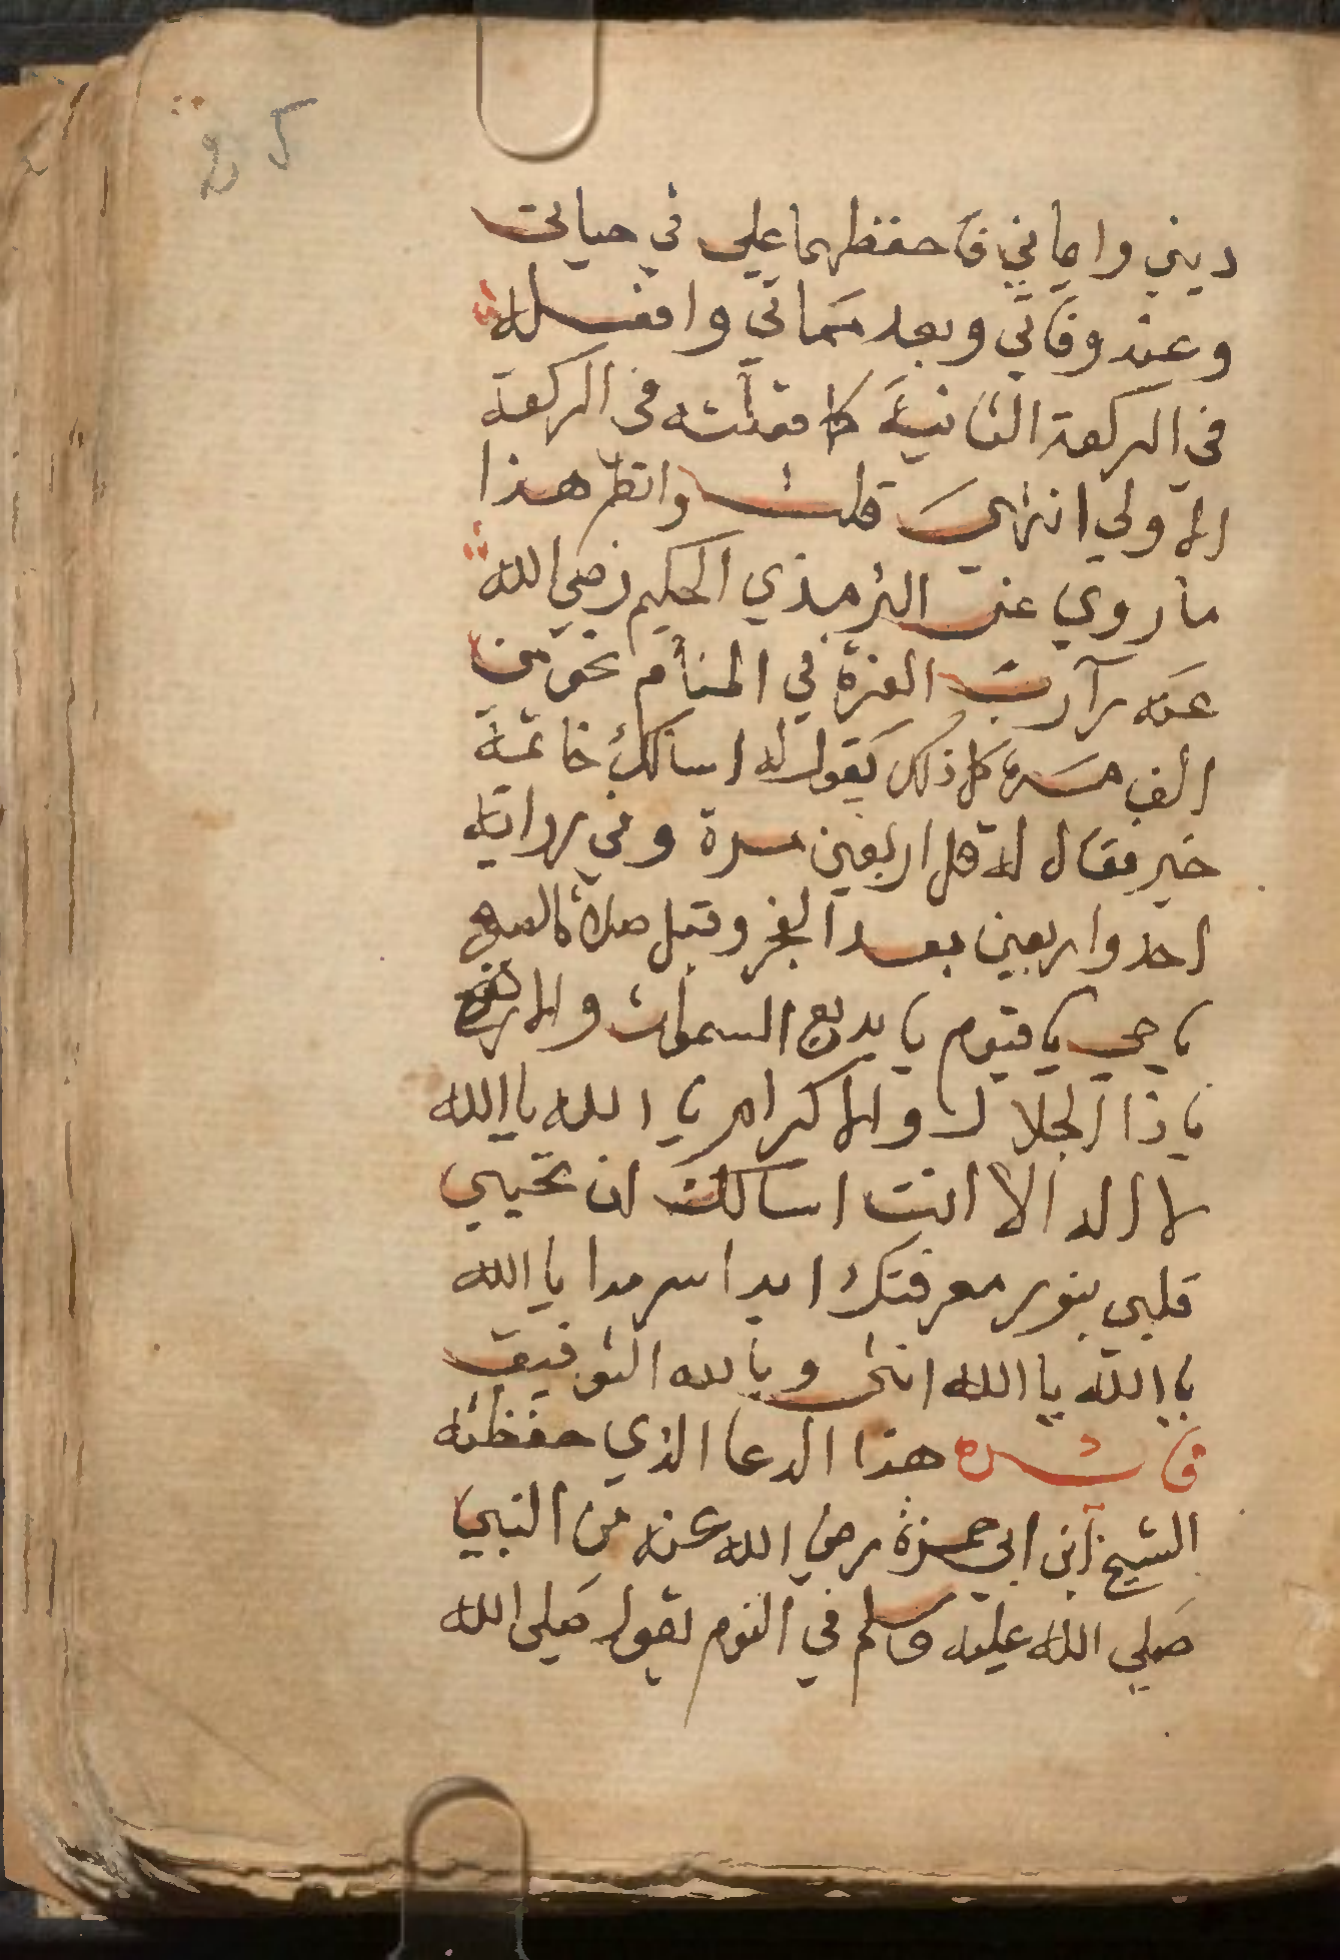 ديني وايماني فاحفظهما علي في حياتي
وعند وفاتي وبعد مماتي وافعله
في الركعة الثانية كما فعلته في الركعة
الاولي انتهي قلت وانظر هذا
ما روي عن الترمذي الحكيم رضي الله
عنه رآ رب العزة في المنام نحو من
الف مرة كل ذلك يقول له اسالك خاتمة
خير فقال له قل اربعين مرة وفي رواية
احد واربعين بعد الفجر وقبل صلاة الصبح
يا حي يا قيوم يا بديع السموات والارض
يا ذا الجلال والاكرام يا الله يا الله
لا اله الا انت اسالك ان تحيي
قلبي بنور معرفتك ابدا سرمدا يا الله
يا الله يا الله انتهى وبالله التوفيق
فائدة هذا الدعا الذي حفظته
الشيخ ابن ابي حمزة رضي الله عنه من النبي
صلي الله عليه وسلم في النوم يقول صلي الله